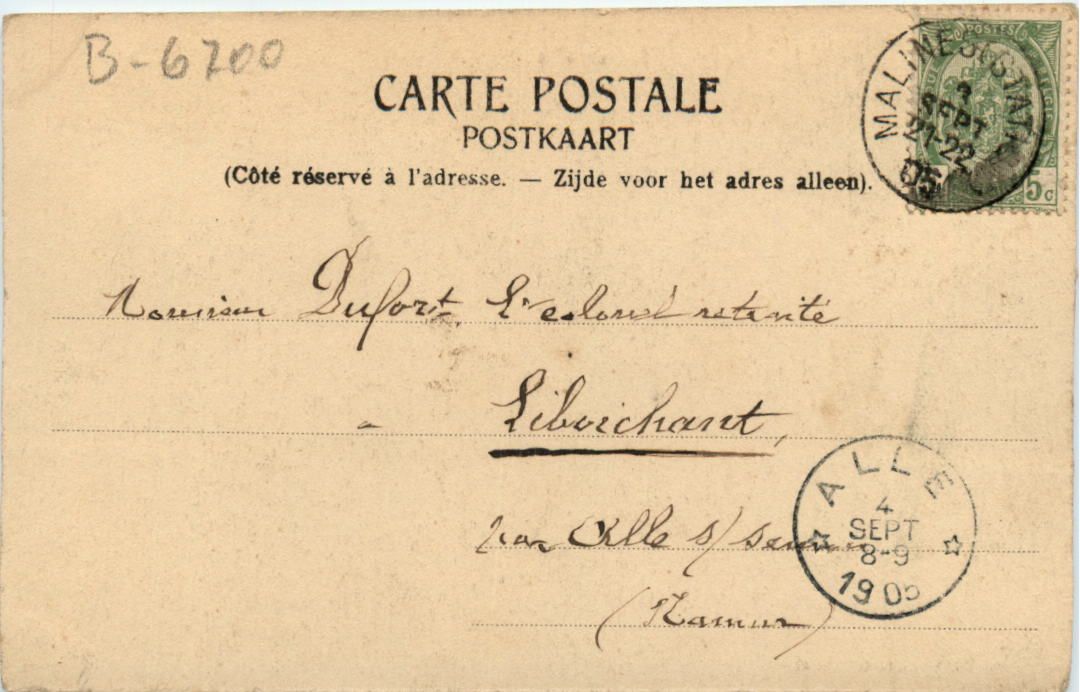 B-6200
CARTE POSTALE
POSTKAART
(Côté réservé à l'adresse. — Zijde voor het adres alleen).
MALINES (STAT
3
SEPT
21-22
05
POSTES
5c
Monsieur Dufort Lt colonel retraité
à Liboichant,
par Alle s/ semois
(Namur)
ALLE
4
SEPT
8-9
1905